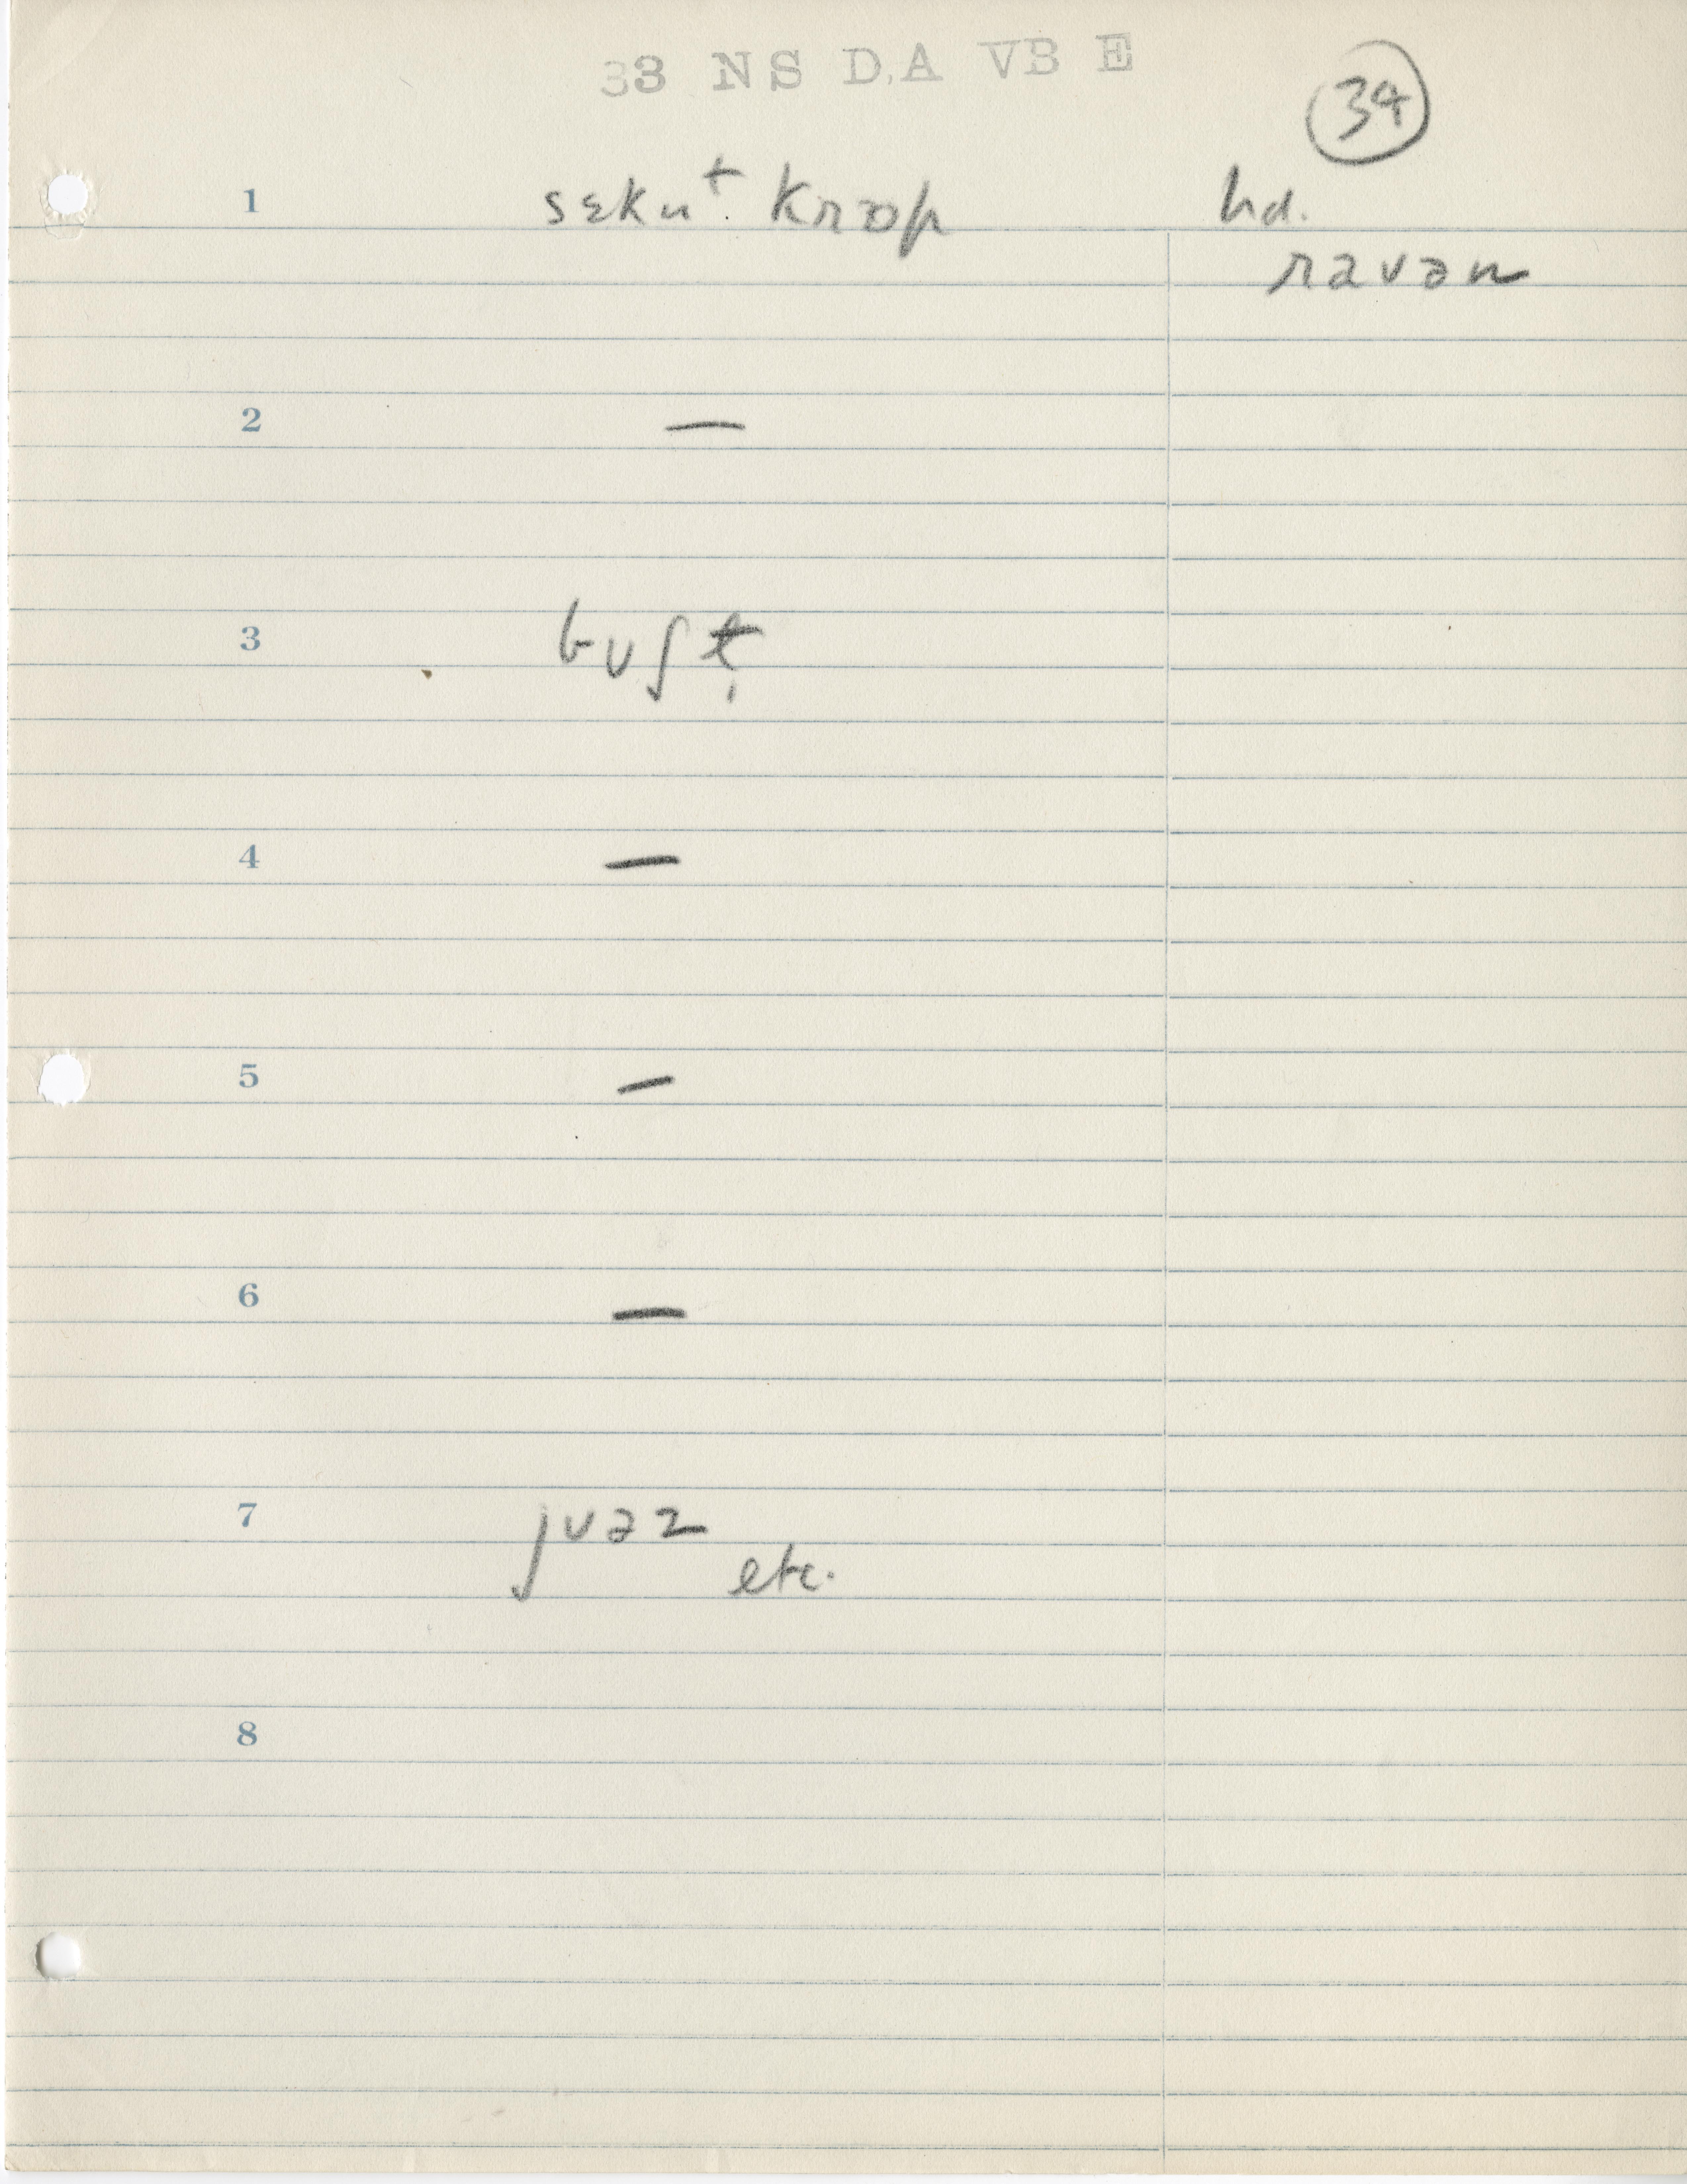 33 NS D.A VB E
34
1 sɛkn⁺. krɔp hd.
ravən
2 —
3 bʊʃt̞
4 —
5 —
6 —
7 juəz
etc.
8